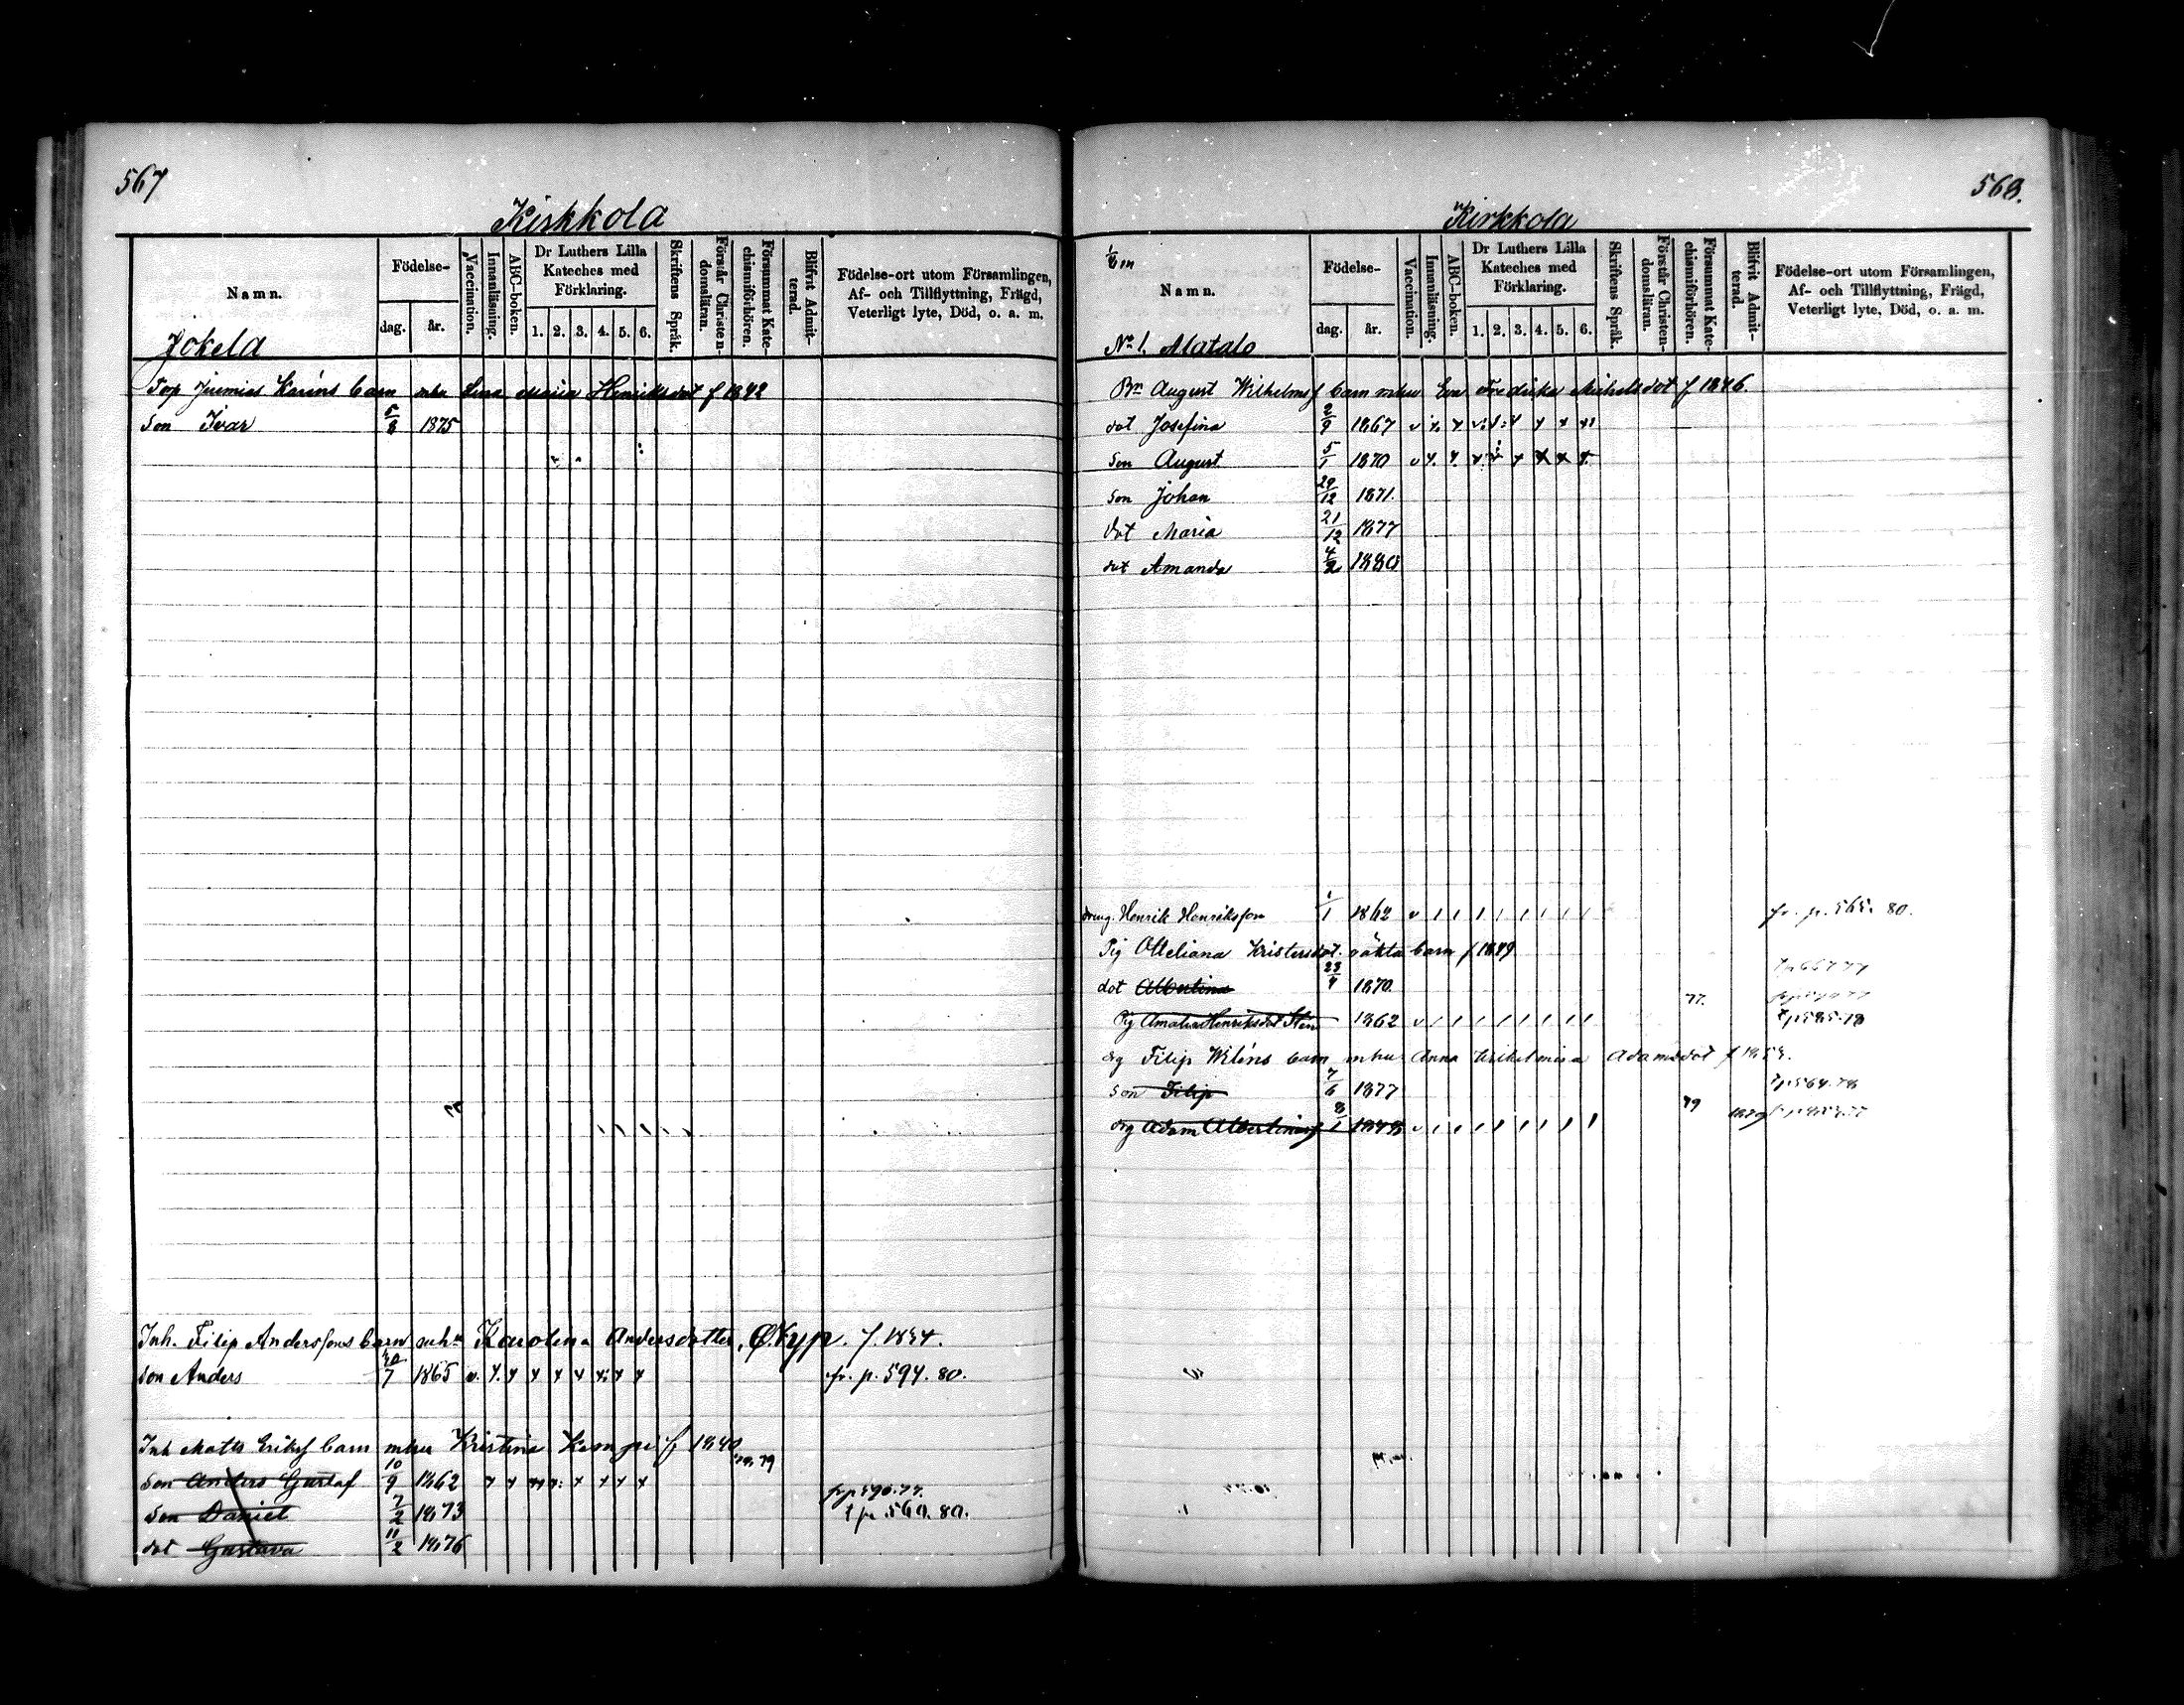 567
Kirkkola
Namn.
Födelse-
dag.
år.
Vaccination.
Innanläsning.
ABC-boken.
Dr Luthers Lilla Kateches med Förklaring.
1. 2. 3. 4. 5. 6.
Skriftens Språk.
Förstår Christendomsläran.
Försummat Katechismiförhören.
Blifvit Admitterad.
Födelse-ort utom Församlingen,
Af- och Tillflyttning, Frägd,
Veterligt lyte, Död, o. a. m.
Jokela
Karéns barn mhu Lena Maria Henriksdot f 1842
Son Ivar 5/8 1875
Inh. Filip Anderssons barn Karolina Andersdotter,
son Anders 30/7 1865 v. fr. p. 594. 80.
Inh Matts Eriksf barn mhu Kristina f 1840
Son Anders Gustaf 10/9 1862 79
Son Daniel 7/2 1873 t p. 560. 80.
dot Gustava 11/2 1876
568.
Kirkkola
Namn.
Födelse-
dag.
år.
Vaccination.
Innanläsning.
ABC-boken.
Dr Luthers Lilla Kateches med Förklaring.
1. 2. 3. 4. 5. 6.
Skriftens Språk.
Förstår Christendomsläran.
Försummat Katechismiförhören.
Blifvit Admitterad.
Födelse-ort utom Församlingen,
Af- och Tillflyttning, Frägd,
Veterligt lyte, Död, o. a. m.
No 1. Alatalo
Bn August Wilhelmsf barn mhu Eva Fredrika Michelsdot f 1846.
dot Josefina 2/9 1867 v
son August 5/1 1870 v
son Johan 29/12 1871.
dot Maria 21/12 1877
dot Amanda 4/2 1880
dräng. Henrik Henriksson 1/1 1862 v fr. p. 565. 80.
Pig Otteliana Kristersdot. oäkta barn f 1849
dot Albertina 23/4 1870.
Pig Amalia Henriksdot Sten 1862 v 77. t p 585. 78
drg Filip Wiléns barn mhu Anna Adamsdot
son Filip 7/6 1877 t p 564. 78
drg Adam Albertinusf 8/1 v 79